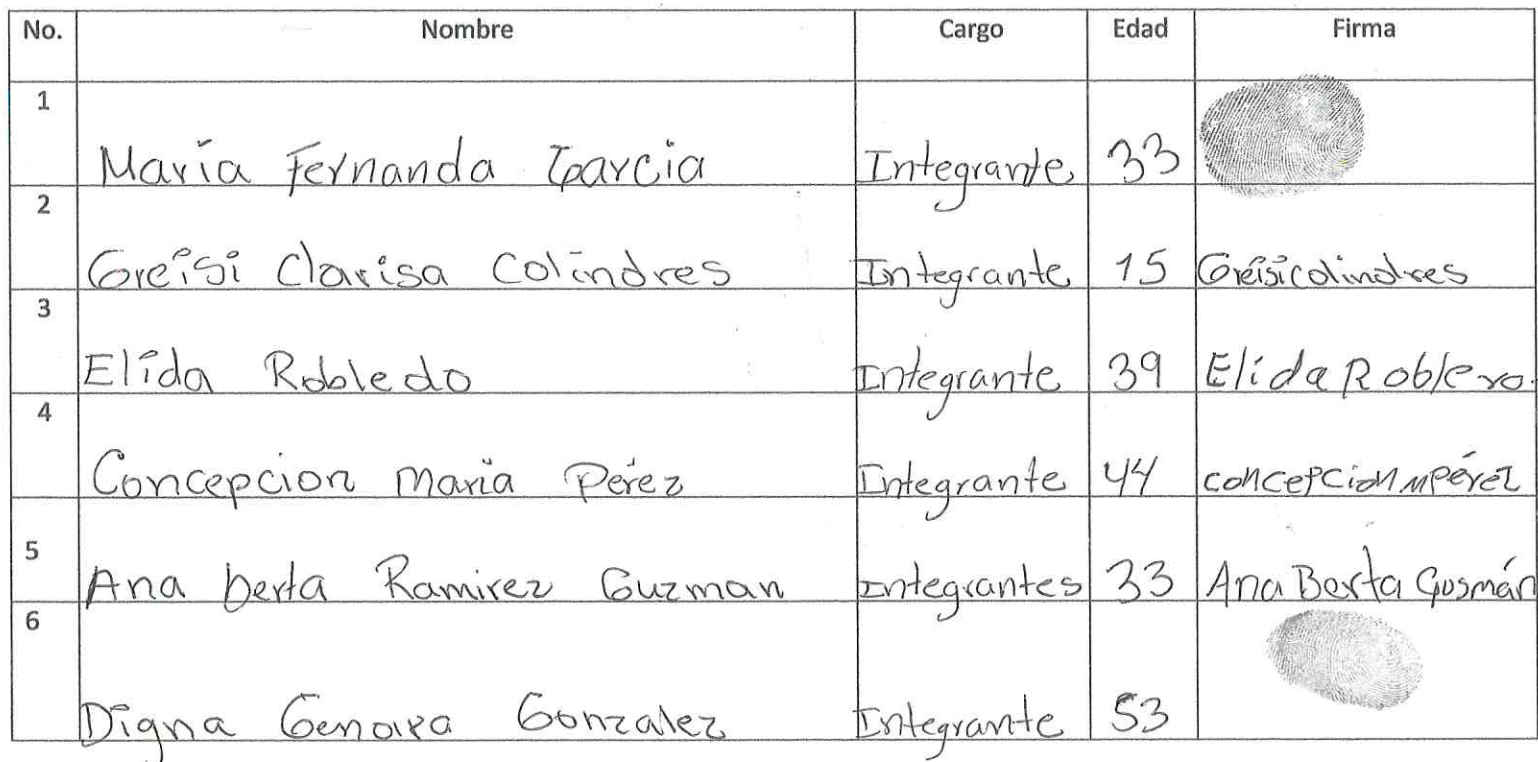 No. Nombre Cargo Edad Firma
1 María Fernanda Garcia Integrante 33
2 Greisi Clarisa Colindres Integrante 15 Greisi colindres
3 Elida Robledo Integrante 39 Elida Roblero.
4 Concepcion María Pérez Integrante 44 concepcion m pérez
5 Ana berta Ramirez Guzman Integrantes 33 Ana Berta Gusmán
6 Digna Genara Gonzalez Integrante 53